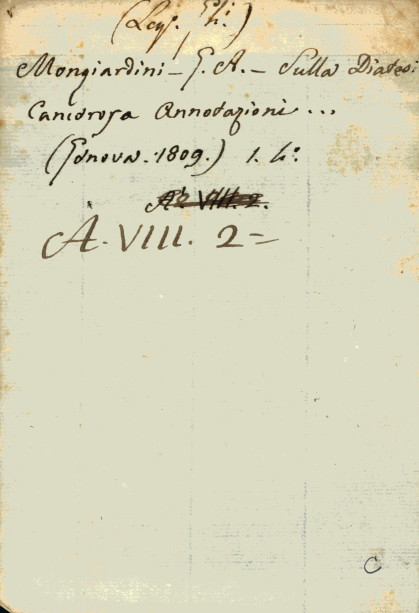 (Leg. Gli.)
Mongiardini - G. A. - Sulla Diatesi
Cancrosa Annotazioni ...
(Genova. 1809.) 1. 4°.
A. VIII. 2.
A. VIII. 2 =
C